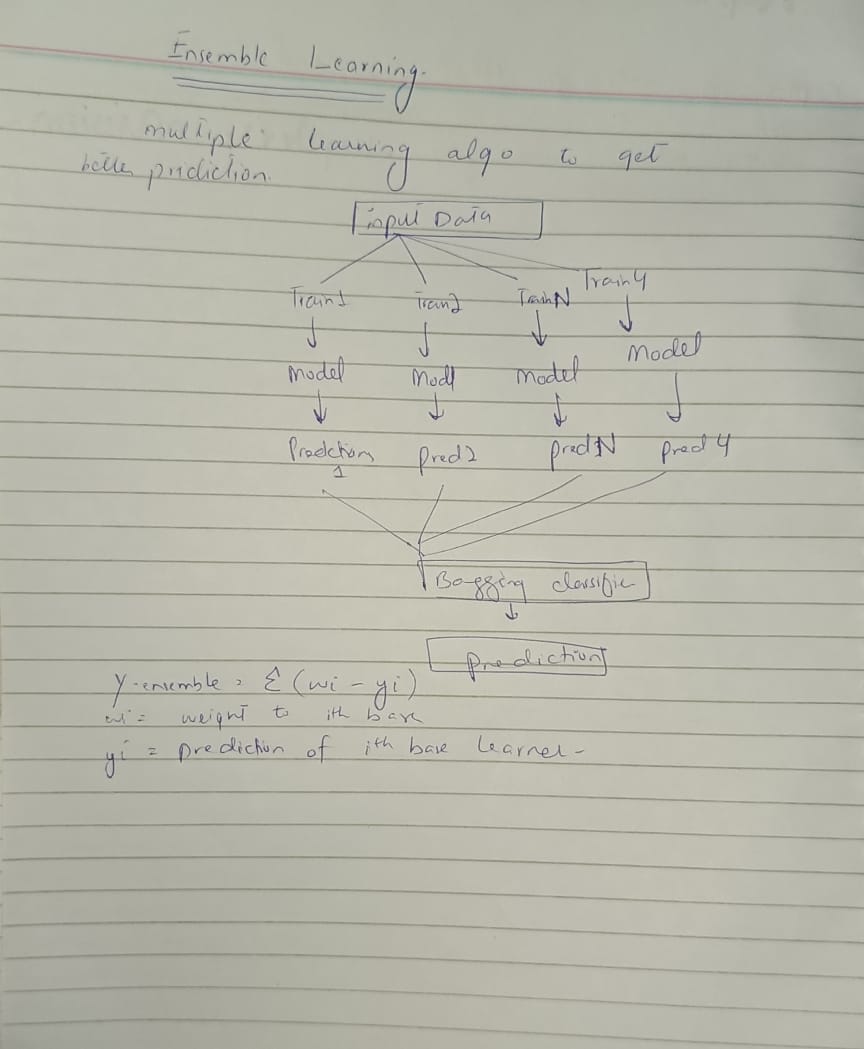 Ensemble Learning.
multiple learning algo to get
better pridiction.
input Data
Train1 Tran2 TrainN Train4
Model Modl Model Model
Pred2 predN pred 4
1
Bagging classific
prediction
Y-ensemble = Σ (wi - yi)
wi = weight to ith base
yi = prediction of ith base learner-